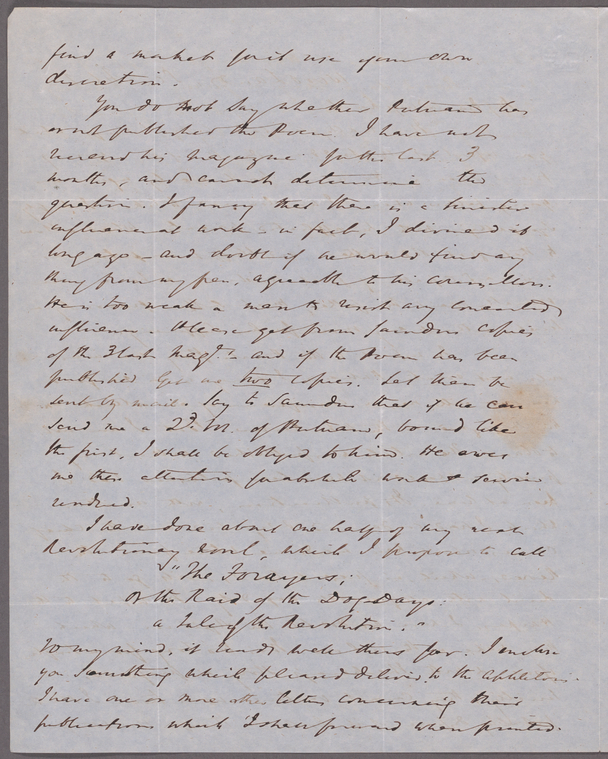 find a market for it use your own
discretion.
You do not say whether Putnam has
or not published the Poem. I have not
received his magazine for the last 3
months, and cannot determine the
question. I fancy that there is a sinister
influence at work - in fact, I divined it
long ago - and doubt if he would find any
thing from my pen, agreeable to his Counsellors.
He is too weak a man to resist any concerted
influence. Please get from Saunders copies
of the 3 last Mag.s - and if the Poem has been
published get me two copies. Let them be
sent by mail. Say to Saunders that if he can
send me a 2d. vol. of Putnam, bound like
the first, I shall be obliged to him. He owes
me these attentions for work & service
rendered.
I have done about one half of my
Revolutionary novel, which I propose to call
"The Forayers;
or the Raid of the Dog-Days:
a Tale of the Revolution."
To my mind, it reads well thus far. I enclose
you something which please deliver to the Appletons.
I have one or more other letters concerning their
publications which I shall forward when printed.